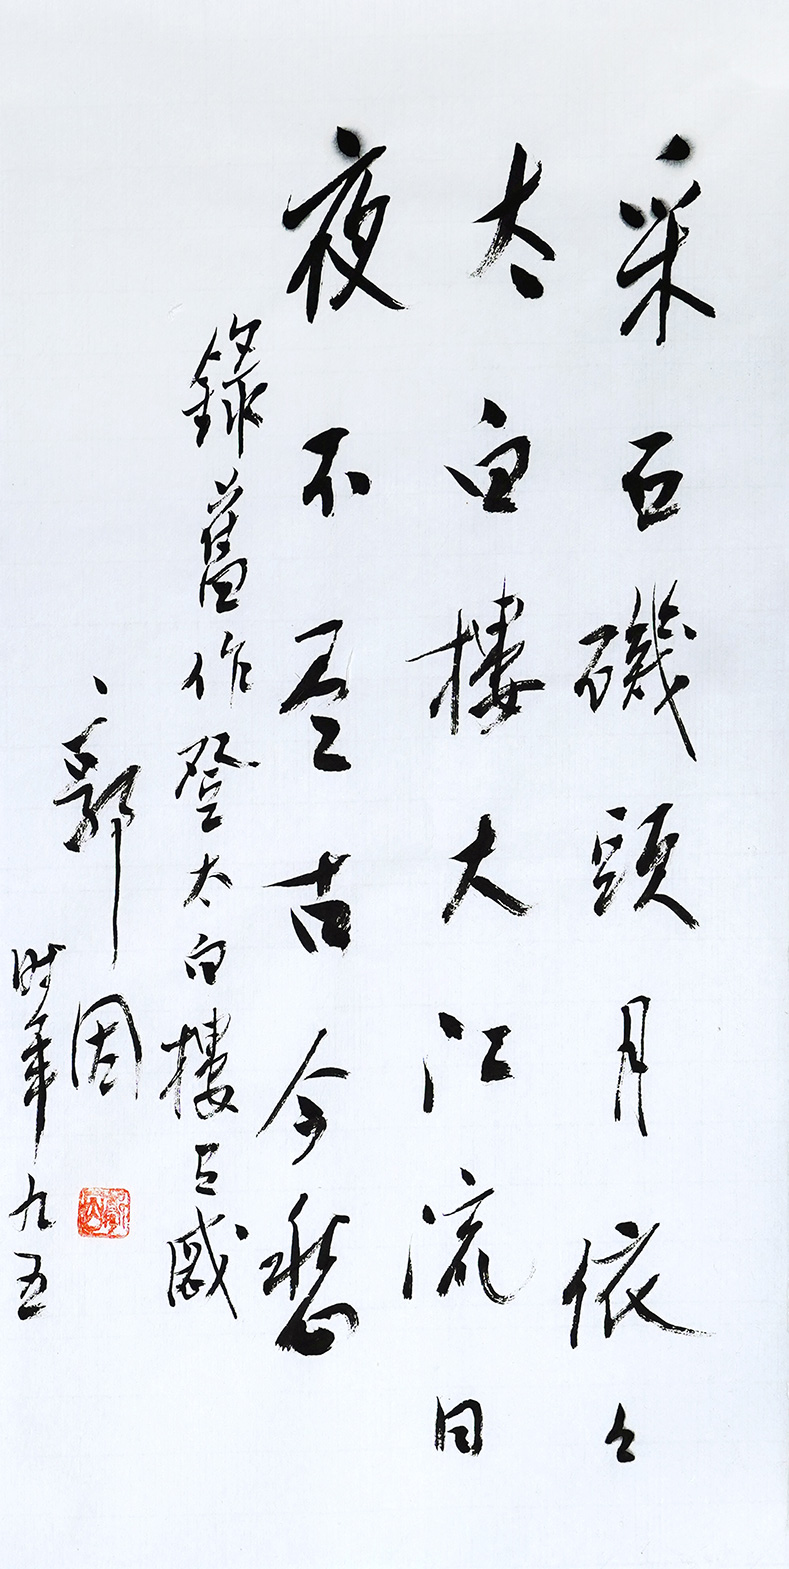 采石磯頭月依々
太白樓大江流日
夜不尽古今愁
錄舊作登太白樓有感
郭因
时年九五